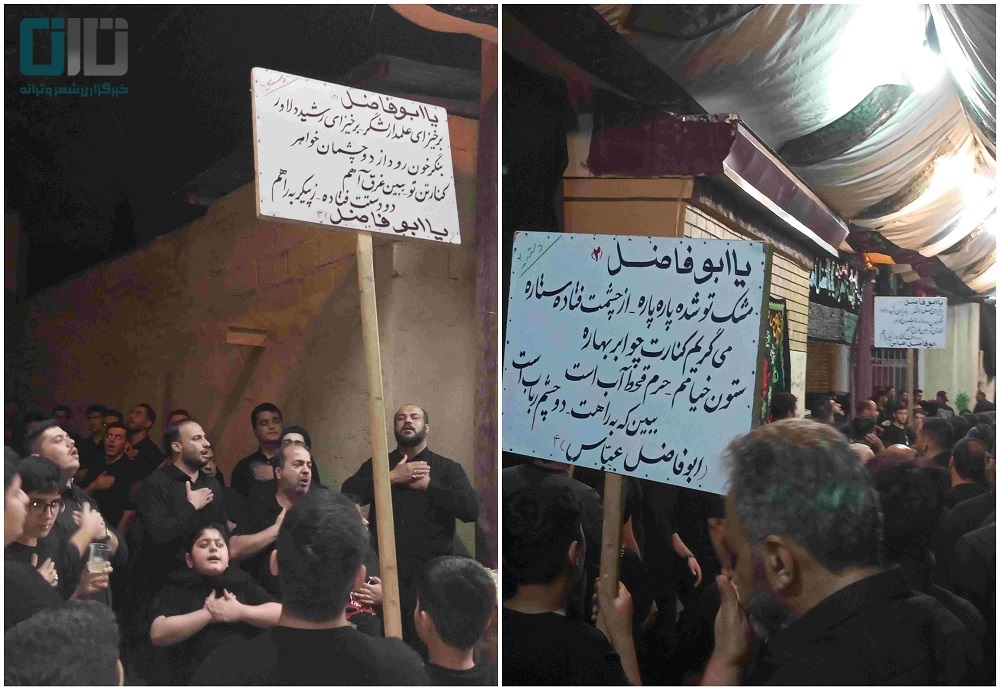 تانا
خبرگزاری شعر و ترانه
یا ابوفاضل (۲)
برخیز ای علمدار لشگر - برخیز ای رشید دلاور
بنگر خون رود از دو چشمان خواهر
کنار تن تو ببین غرق آهم
دو دستت فتاده - ز پیکر به راهم
یا ابوفاضل (۳)
یا ابوفاضل (۲)
مشک تو شده پاره پاره - از چشمت فتاده ستاره
می گریم کنارت چو ابر بهاره
ستون خیامم - حرم قحط آب است
ببین که به راهت - دو چشم رباب است
(ابوفاضل عباس) ۳
یا ابوفاضل